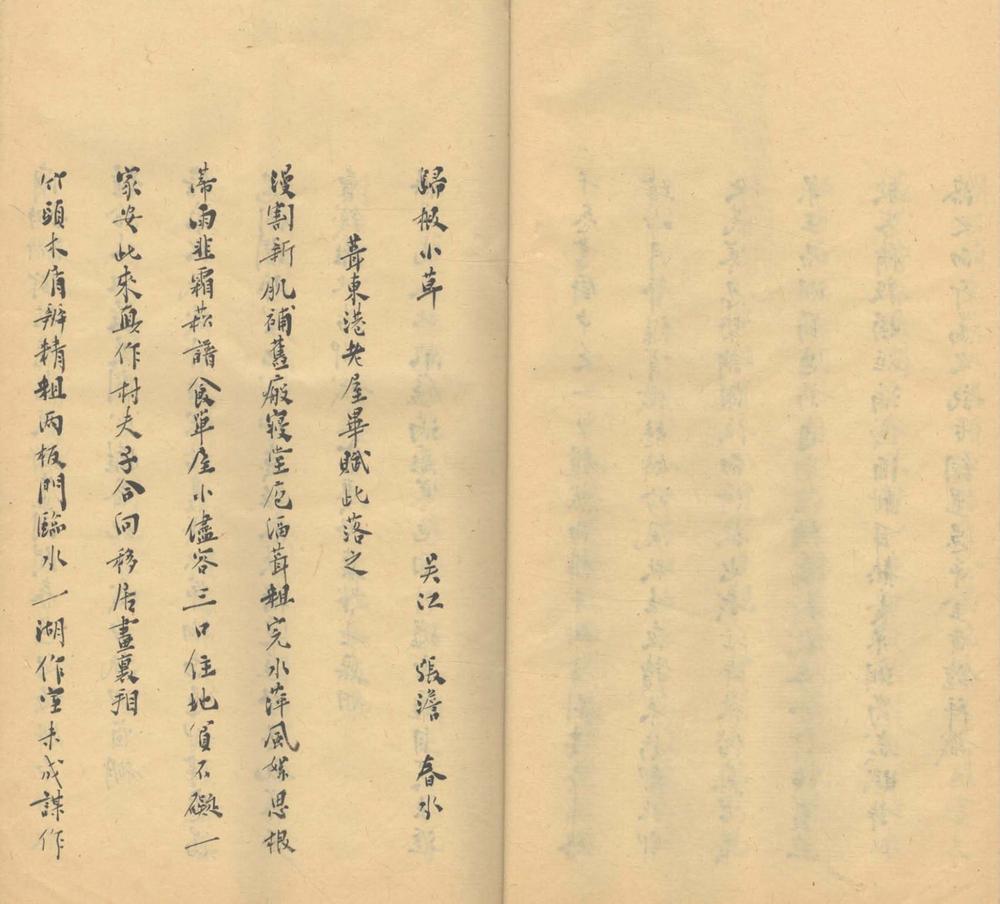 歸板小草
吳江 張澹 春水
葺東港老屋畢賦此落之
漫割新肌補舊瘢寢堂庖湢葺粗完水萍風絮思根
蒂雨韭霜菘譜食單屋小儘容三口住地貧不礙一
家安此來真作村夫子合向移居畫裏看
竹頭木屑辦精粗兩板門臨水一湖作室未成謀作